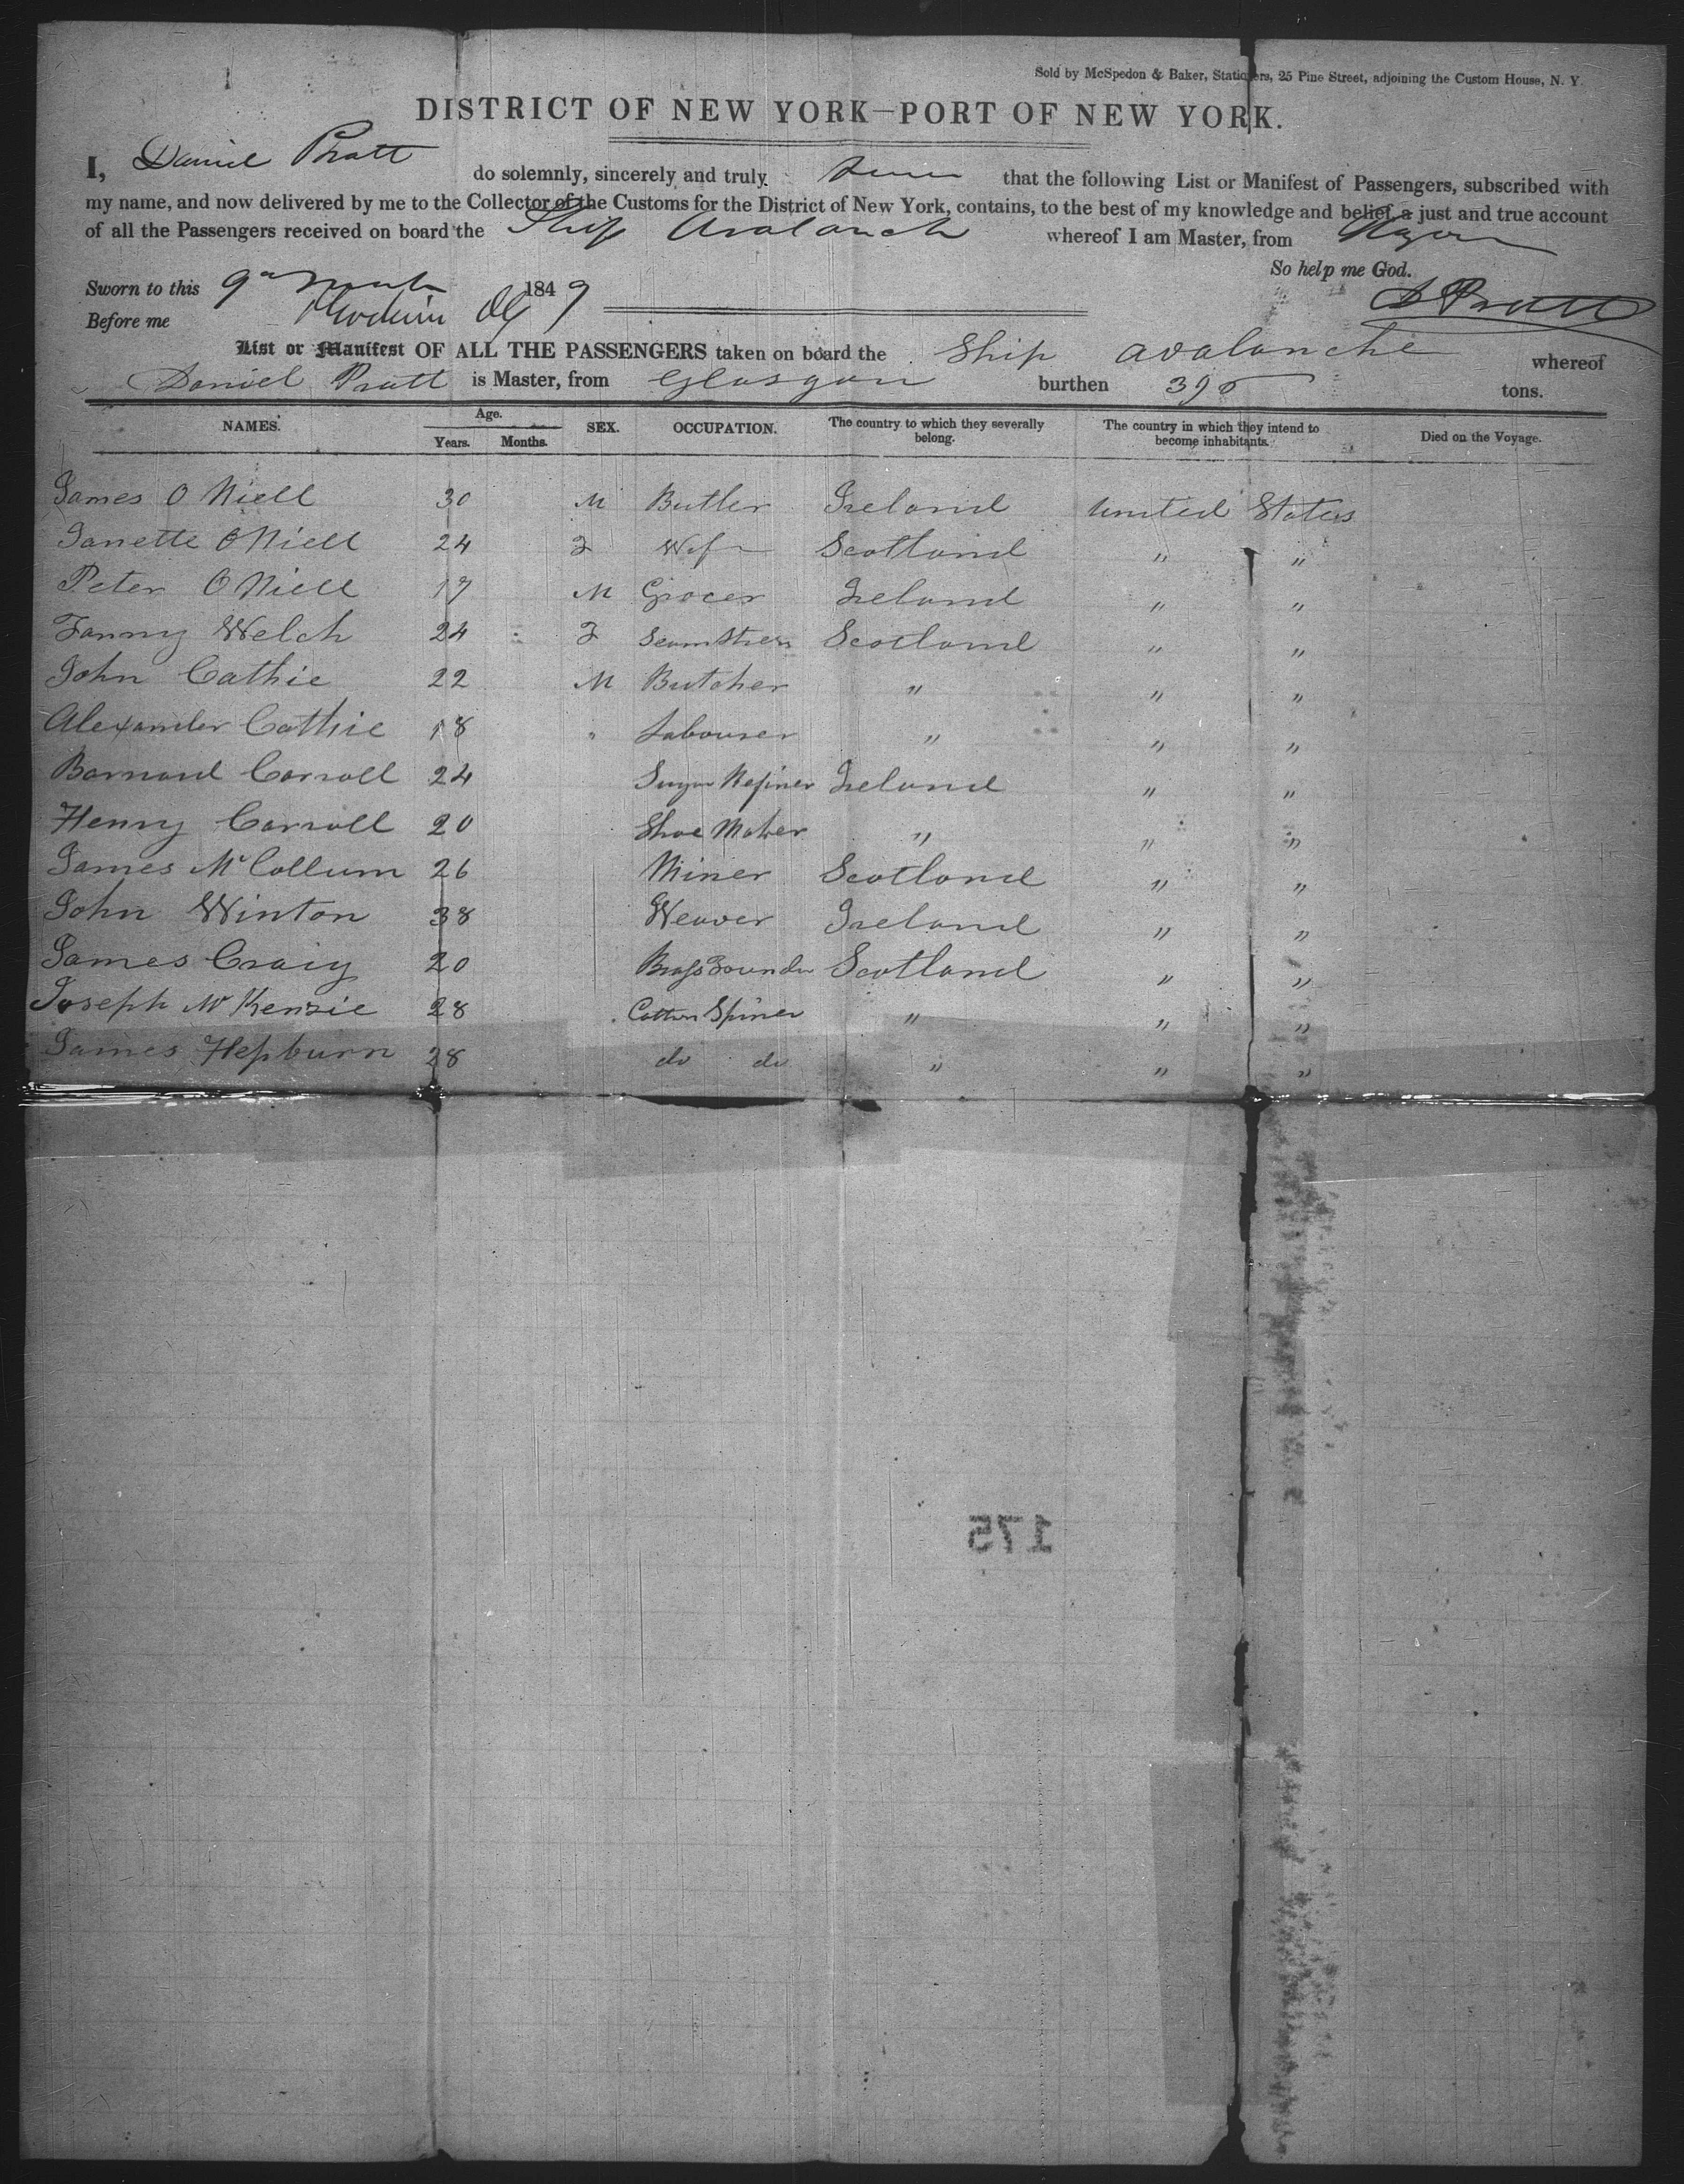 Sold by McSpedon & Baker, Stationers, 25 Pine Street, adjoining the Custom House, N. Y.
DISTRICT OF NEW YORK—PORT OF NEW YORK.
I, Daniel Pratt do solemnly, sincerely and truly swear that the following List or Manifest of Passengers, subscribed with
my name, and now delivered by me to the Collector of the Customs for the District of New York, contains, to the best of my knowledge and belief, a just and true account
of all the Passengers received on board the Ship Avalanch whereof I am Master, from
So help me God.
Sworn to this 9 March 1849
D Pratt
Before me
List or Manifest OF ALL THE PASSENGERS taken on board the Ship Avalanche whereof
Daniel Pratt is Master, from Glasgow burthen tons.
NAMES. Age. Years. Months. SEX. OCCUPATION. The country to which they severally belong. The country in which they intend to become inhabitants. Died on the Voyage.
James O Niell 30 M Butler Ireland United States
Janette O Niell 24 F Wife Scotland " "
Peter O Niell 17 M Grocer Ireland " "
Fanny Welch 24 F Seamstress Scotland " "
John Cathie 22 M Butcher " " "
Alexander Cathie 18 " Labourer " " "
Barnard Carroll 24 Sugar Refiner Ireland " "
Henry Carroll 20 Shoe Maker " " "
James McCollum 26 Miner Scotland " "
John Winton 38 Weaver Ireland " "
James Craig 20 Brass Founder Scotland " "
Joseph McKenzie 28 Cotton Spiner " " "
James Hepburn 28 do do " " "
175